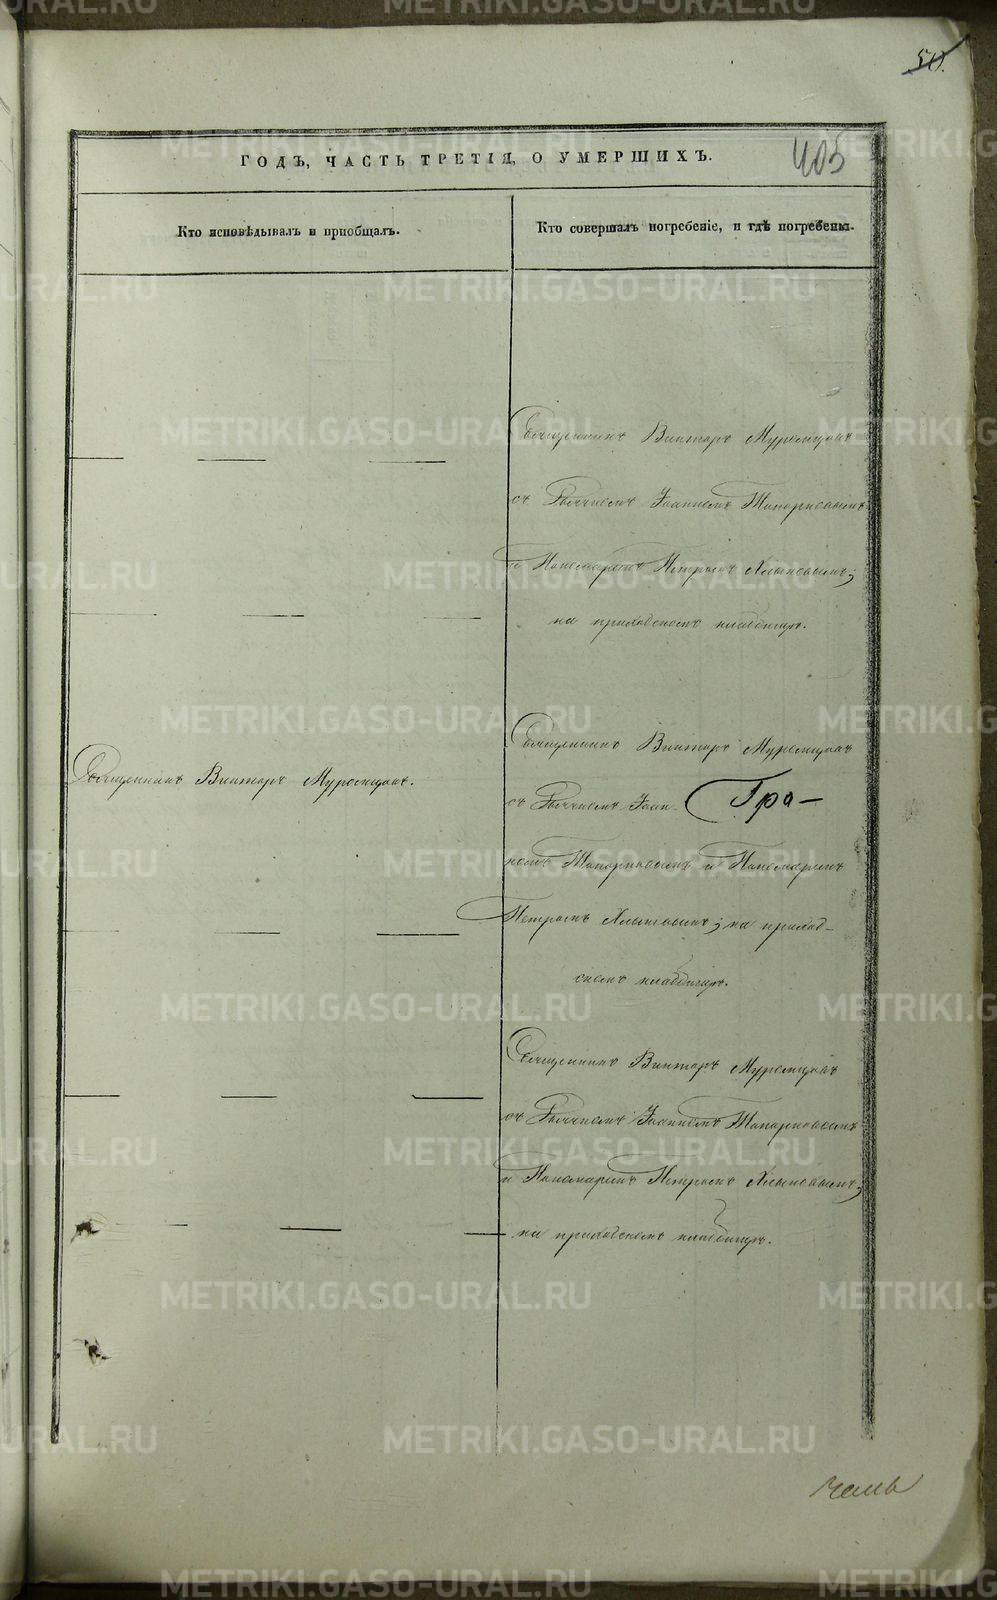 50.
ГОДЪ, ЧАСТЬ ТРЕТІЯ, О УМЕРШИХЪ.
405
Кто исповѣдывалъ и пріобщалъ.
Кто совершалъ погребеніе, и гдѣ погребены.
Священникъ Викторъ Муромцовъ
съ Дьячкомъ Іоанномъ Топорковымъ
и Пономаремъ Петромъ Хлыновымъ;
на приходскомъ кладбищѣ.
Священникъ Викторъ Муромцовъ.
Священникъ Викторъ Муромцовъ
съ Дьячкомъ Іоан- Гра-
номъ Топорковымъ и Пономаремъ
Петромъ Хлыновымъ; на приход-
скомъ кладбищѣ.
Священникъ Викторъ Муромцовъ
съ Дьячкомъ Іоанномъ Топорковымъ
и Пономаремъ Петромъ Хлыновымъ;
на приходскомъ кладбищѣ.
METRIKI.GASO-URAL.RU